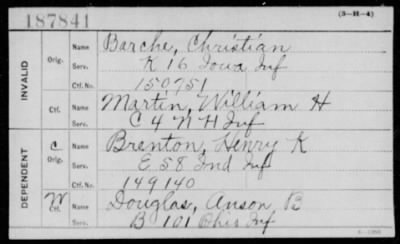 187841 (3-H-4)
INVALID Orig. Name Barche, Christian
Serv. K 16 Iowa Inf
Ctf. No. 150751
Ctf. Name Martin, William H
Serv. C 4 N H Inf
DEPENDENT C Orig. Name Brenton, Henry K
Serv. E 58 Ind Inf
Ctf. No. 149140
W Ctf. Name Douglas, Anson B
Serv. B 101 Ohio Inf